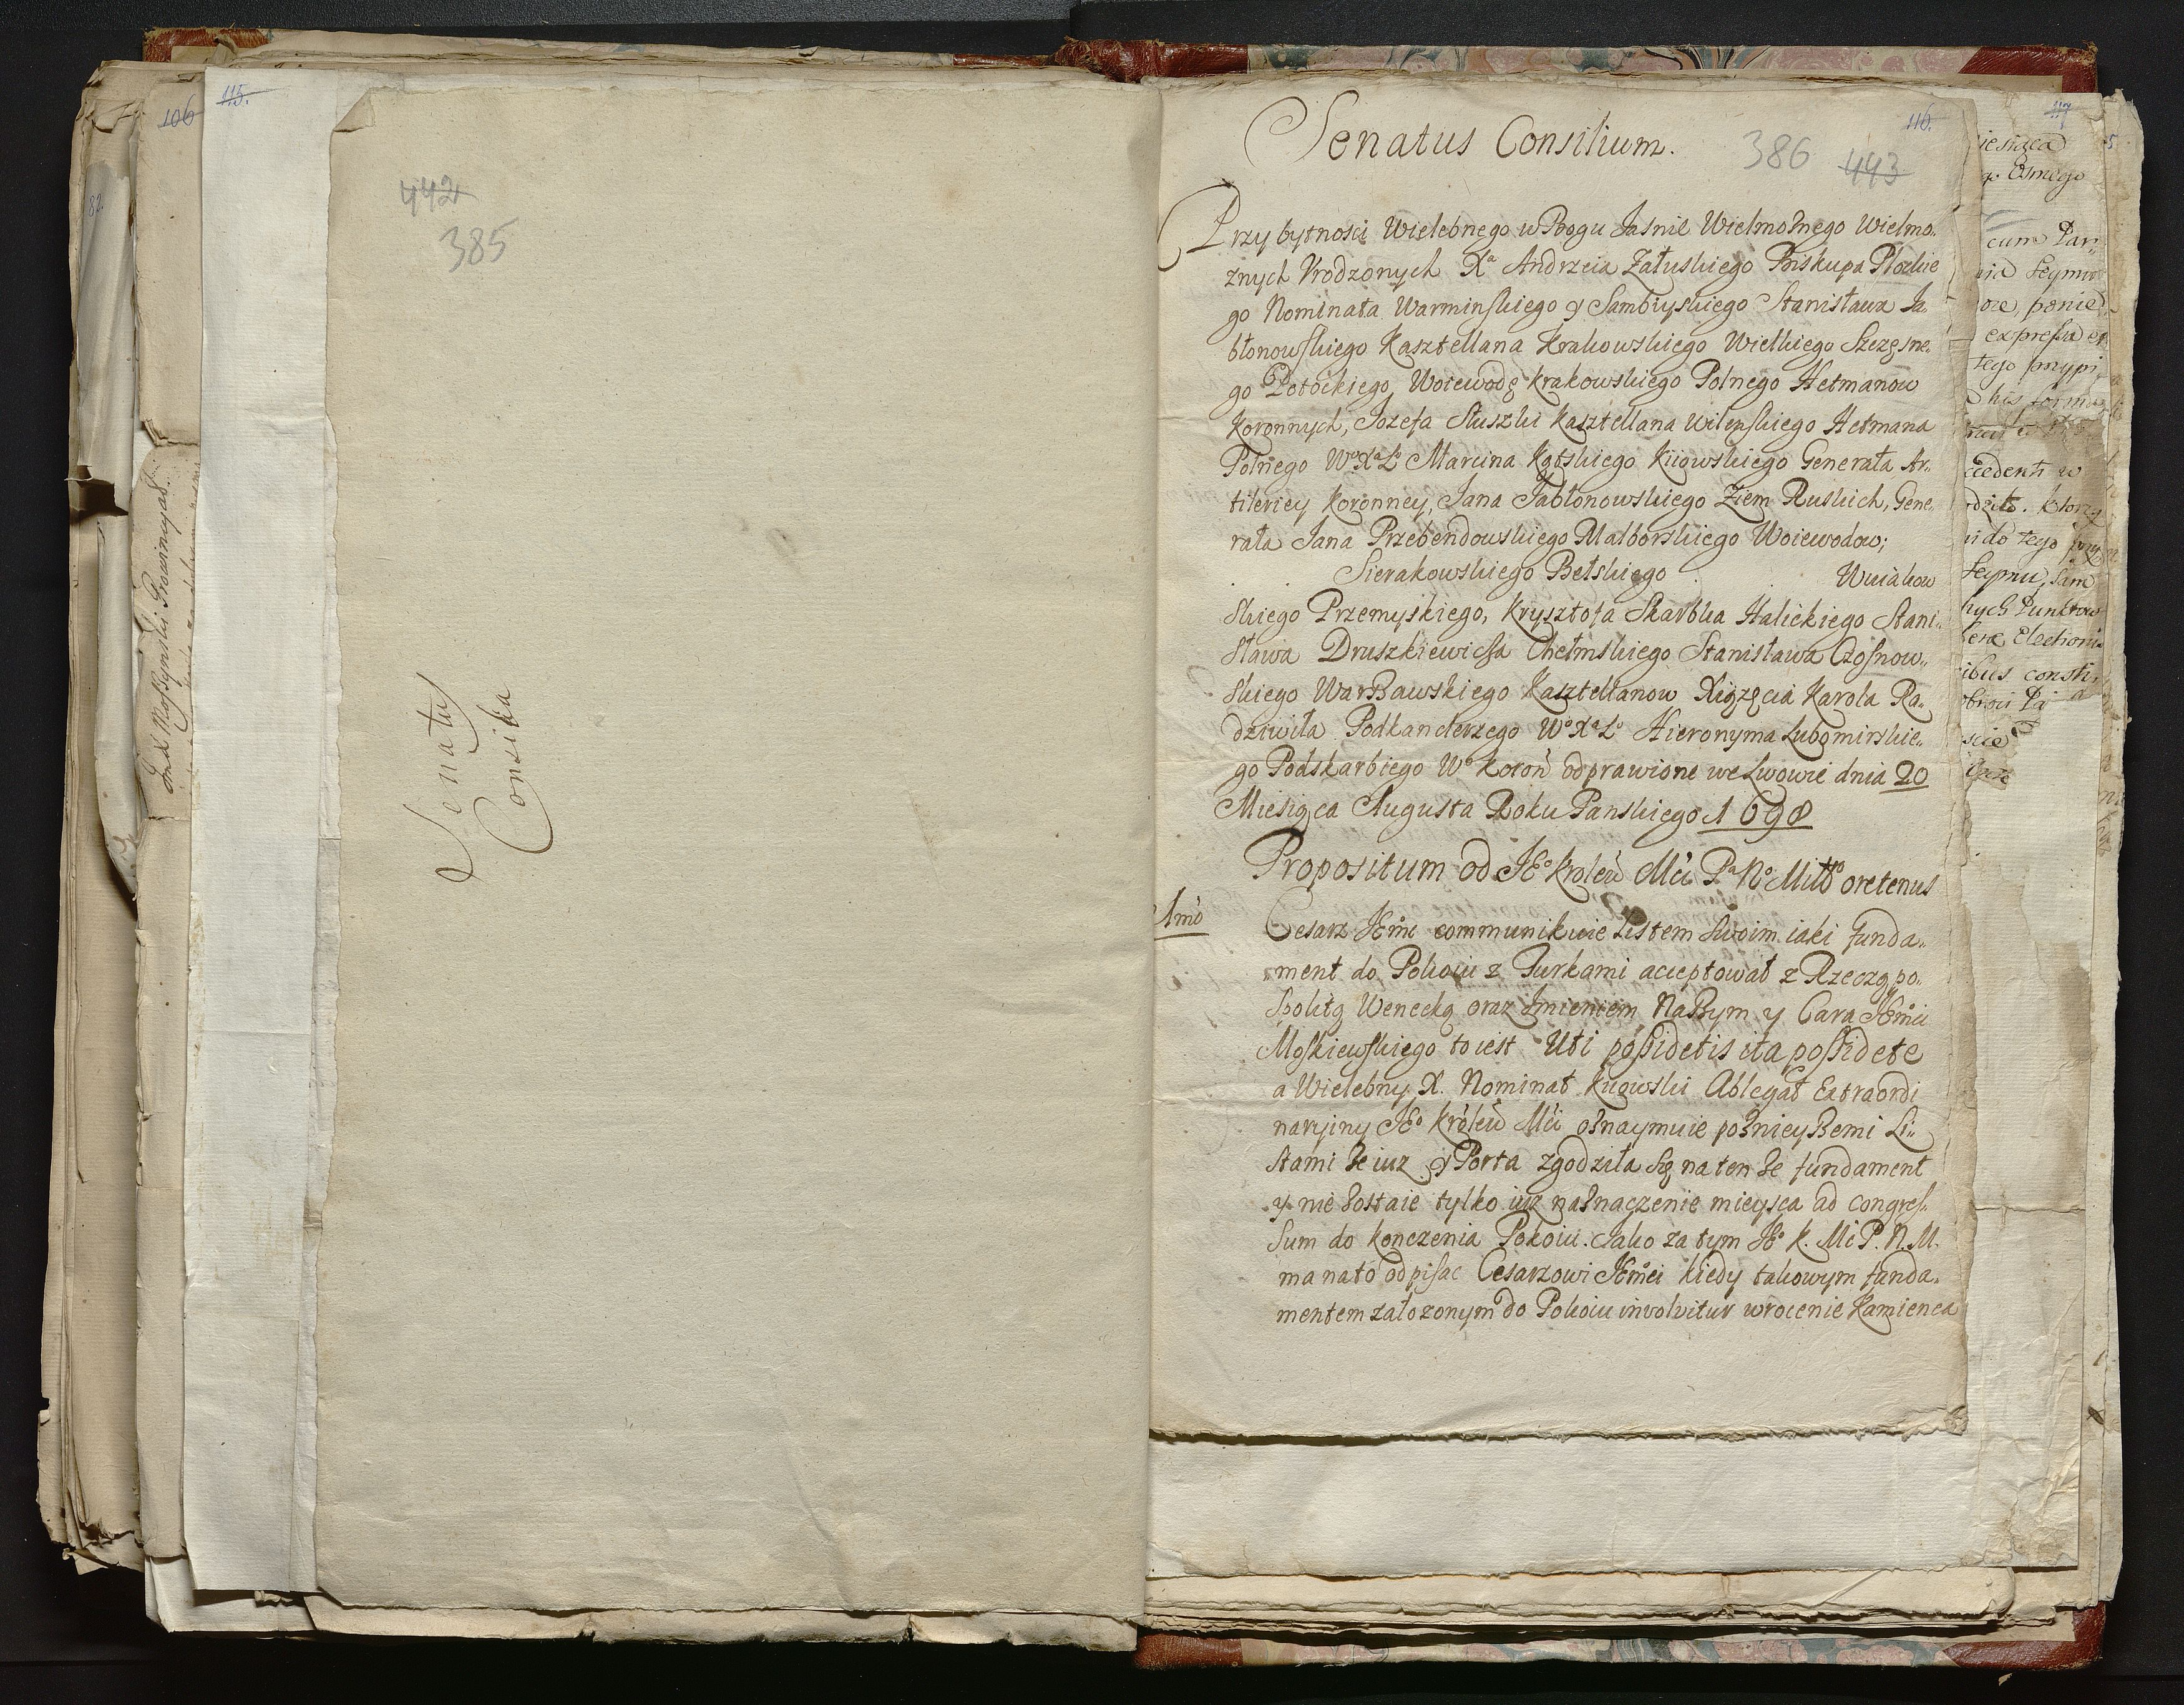 106
115.
82
442
385
Senatus
Consilia
116.
Senatus Consilium.
386 443
Przy bytnosci Wielebnego w Bogu Jasnie Wielmożnego Wielmo„
żnych Vrodzonych Xa Andrzeia Załuskiego Biskupa Płockie
go Nominata Warminskiego y Sambiyskiego Stanisława Ja„
błonowskiego Kasztellana Krakowskiego Wielkiego Szczęsne„
go Potockiego Woiewodę Krakowskiego Polnego Hetmanow
Koronnych, Jozefa Słuszki Kasztellana Wilenskiego Hetmana
Polnego Wo Xa Lo Marcina Kątskiego Kiiowskiego Generała Ar„
tileriey Koronney, Jana Jabłonowskiego Ziem Ruskich, Gene„
rała Jana Przebendowskiego Malborskiego Woiewodow;
Sierakowskiego Bełskiego
skiego Przemyskiego, Krysztofa Skarbka Halickiego Stani„
sława Druszkiewicza Chełmskiego Stanisława Czosnow„
skiego Warszawskiego Kasztellanow Xiązęcia Karola Ra„
dziwiła Podkanclerzego Wo Xa Lo Hieronyma Lubomirskie„
go Podskarbiego Wo Koron odprawione we Lwowie dnia 20
Miesiąca Augusta Roku Panskiego 1698
Propositum od JEo Krolew Mci Pa No Miłło oretenus
1mo
Cesarz JEmc communikuie Listem swoim iaki funda„
ment do Pokoiu z Turkami acceptował z Rzecząpo„
spolitą Wenecką oraz Imieniem Naszym y Cara JEmci
Moskiewskiego to iest Uti possidetis ita possidete
a Wielebny X. Nominat Kiiowski Ablegat Extraordi
naryiny JEo Krolew Mci oznaymuie poznieyszemi Li„
stami że iuz y Porta zgodziła się na ten że fundament
y nie zostaie tylko iuz naznaczenie mieysca ad congres„
sum do konczenia Pokoiu. Jako za tym JEo K. Mc P. N. M.
ma nato odpisac Cesarzowi JEmci kiedy takowym funda„
mentem założonym do Pokoiu involvitur wrocenie Kamienca
117
iesiąca
cum Par„
expressa
tego przypi
cedenti w
ktorzy
do tego
Seymu,
Punktow
Electionis
ibus consti„